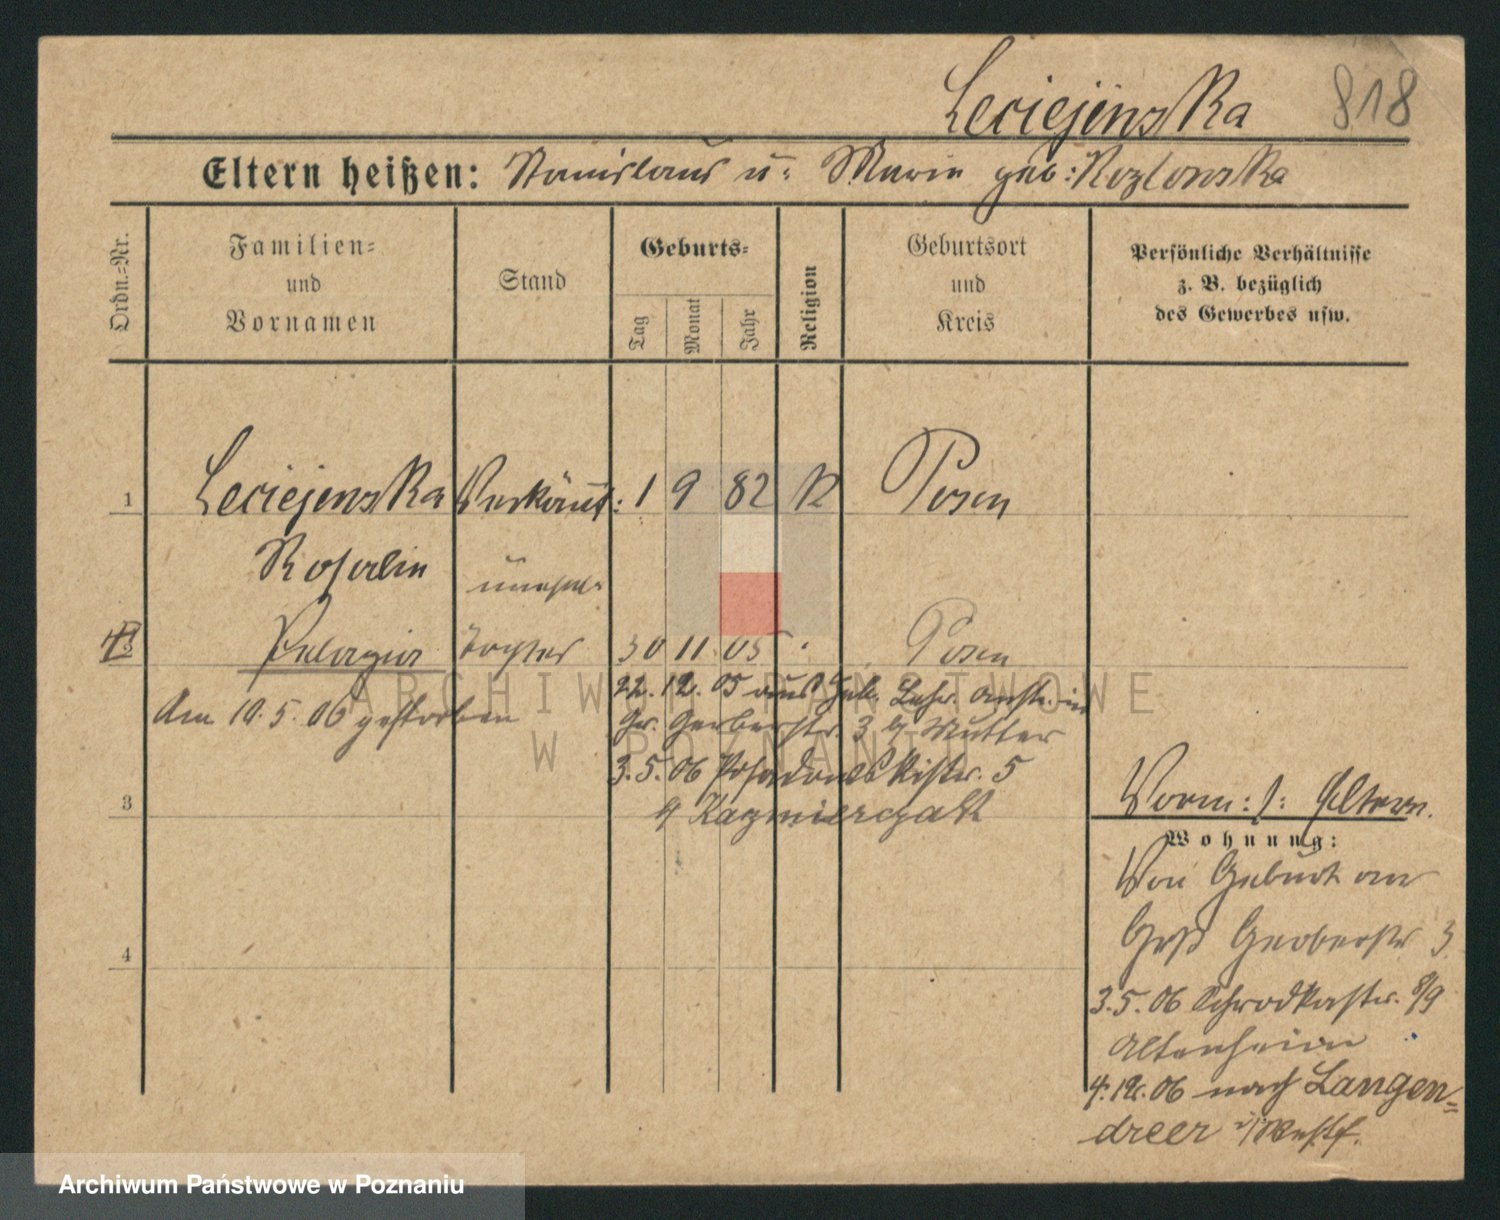 Leciejewska 818
Eltern heißen: Stanislaus u. Marie geb: Kozlowska
Ordn.=Nr.
Familien=
und
Vornamen
Stand
Geburts=
Tag
Monat
Jahr
Religion
Geburtsort
und
Kreis
Persönliche Verhältnisse
z. B. bezüglich
des Gewerbes usw.
1 Leciejewska Verkäuf: 1 9 82 K Posen
Rosalie
unehel.
2 Pelagia Tochter 30 11 05 Posen
Am 10. 5. 06 gestorben
22. 12. 05 aus Geb. Lehr. Anst. in
Gr. Gerberstr. 3 b/ Mutter
3. 5. 06 Posadowskistr. 5
b/ Kazmierczak
3
4
Vorm: s: Eltern.
Wohnung:
Von Geburt an
Groß Gerberstr 3.
3. 5. 06 Schrodkastr. 8/9
Altenheim
4. 12. 06 nach Langen=
dreer i/Westf.
ARCHIWUM PAŃSTWOWE
W POZNANIU
Archiwum Państwowe w Poznaniu